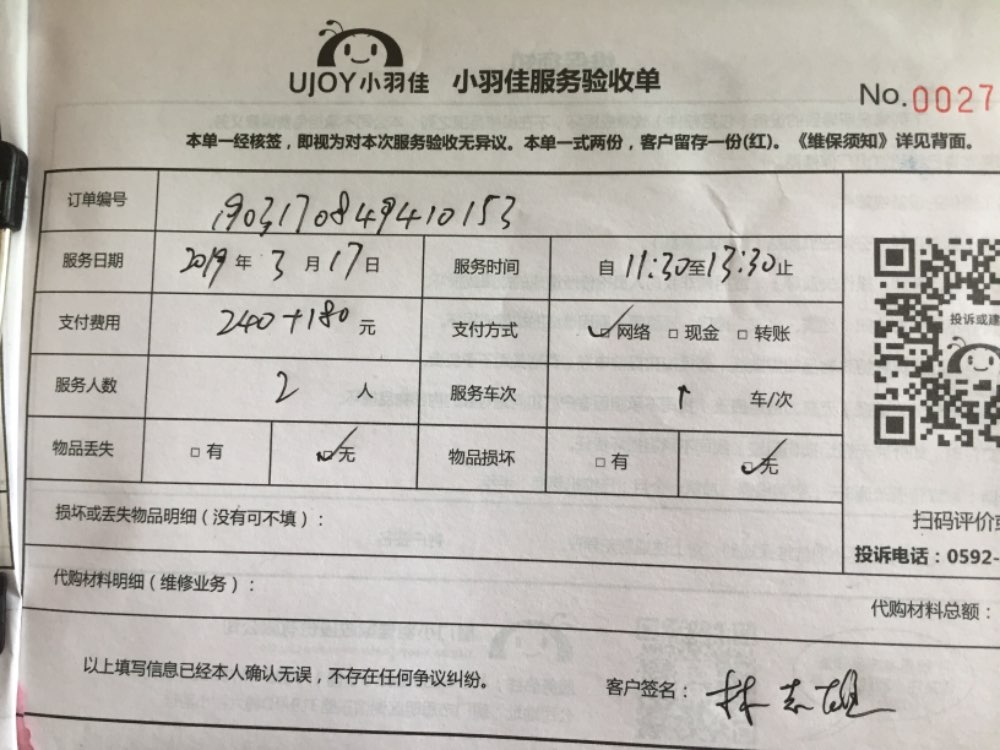 UJOY小羽佳 小羽佳服务验收单
No.0027
本单一经核签，即视为对本次服务验收无异议。本单一式两份，客户留存一份(红)。《维保须知》详见背面。
订单编号 1903170849410153
服务日期 2019年3月17日 服务时间 自11:30至13:30止
支付费用 240+180元 支付方式 ☑网络 □现金 □转账
投诉或建
服务人数 2人 服务车次 1车/次
物品丢失 □有 ☑无 物品损坏 □有 ☑无
损坏或丢失物品明细（没有可不填）：
扫码评价或
投诉电话：0592-
代购材料明细（维修业务）：
代购材料总额：
以上填写信息已经本人确认无误，不存在任何争议纠纷。
客户签名：林志雄